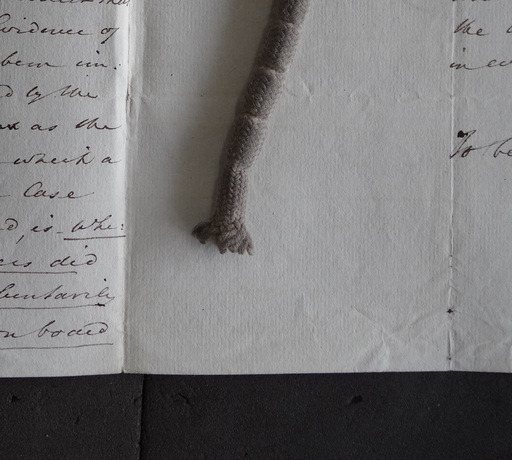 evidence of
been im:
d by the
ax as the
which a
Case
d, is whe:
ces did
luntarily
on board
the
in ev
To be